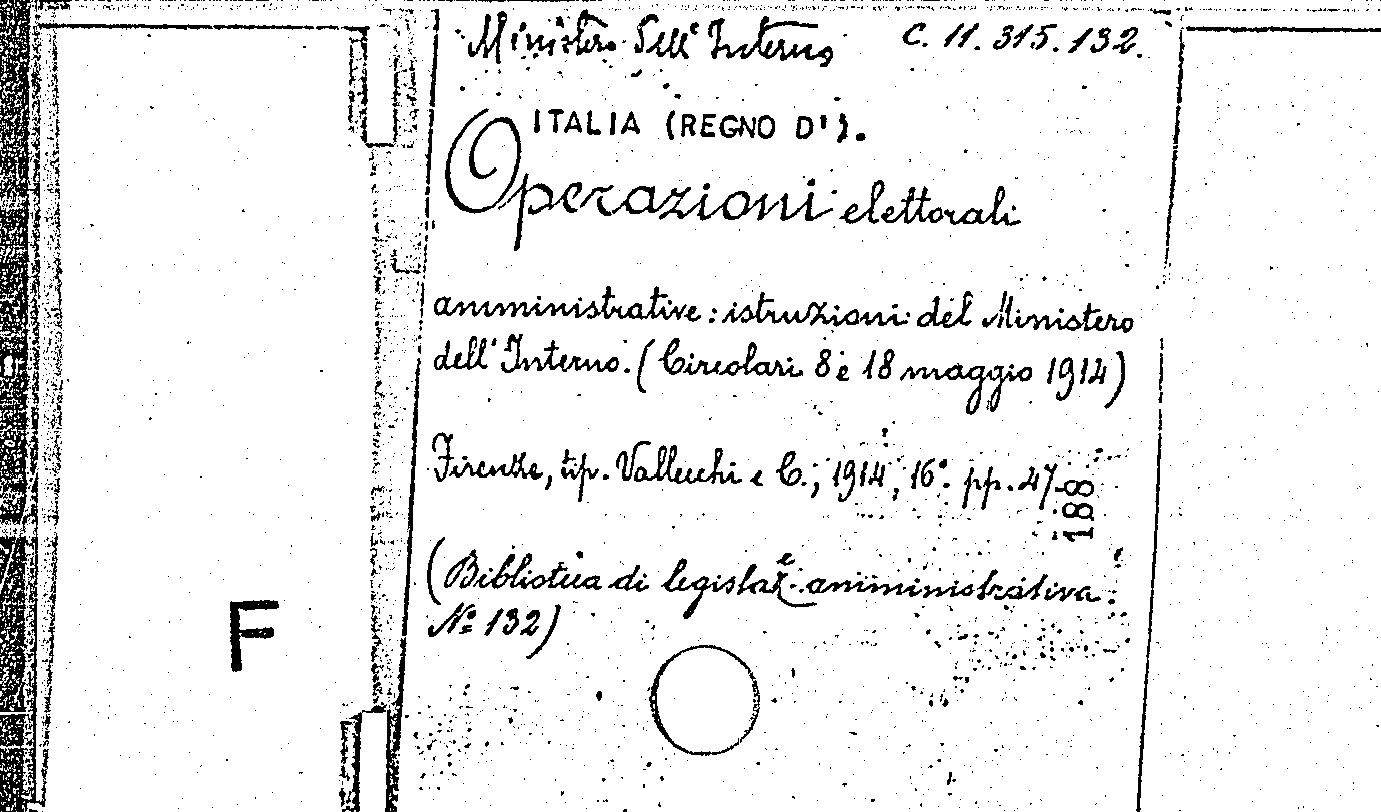 Ministero Dell'Interno C. 11. 315. 132.
ITALIA (REGNO D').
Operazioni elettorali
amministrative: istruzioni del Ministero
dell'Interno. (Circolari 8 e 18 maggio 1914)
Firenze, tip. Vallecchi e C., 1914, 16°. pp. 47
188
(Biblioteca di legislaz.e amministrativa.
N.° 132)
F